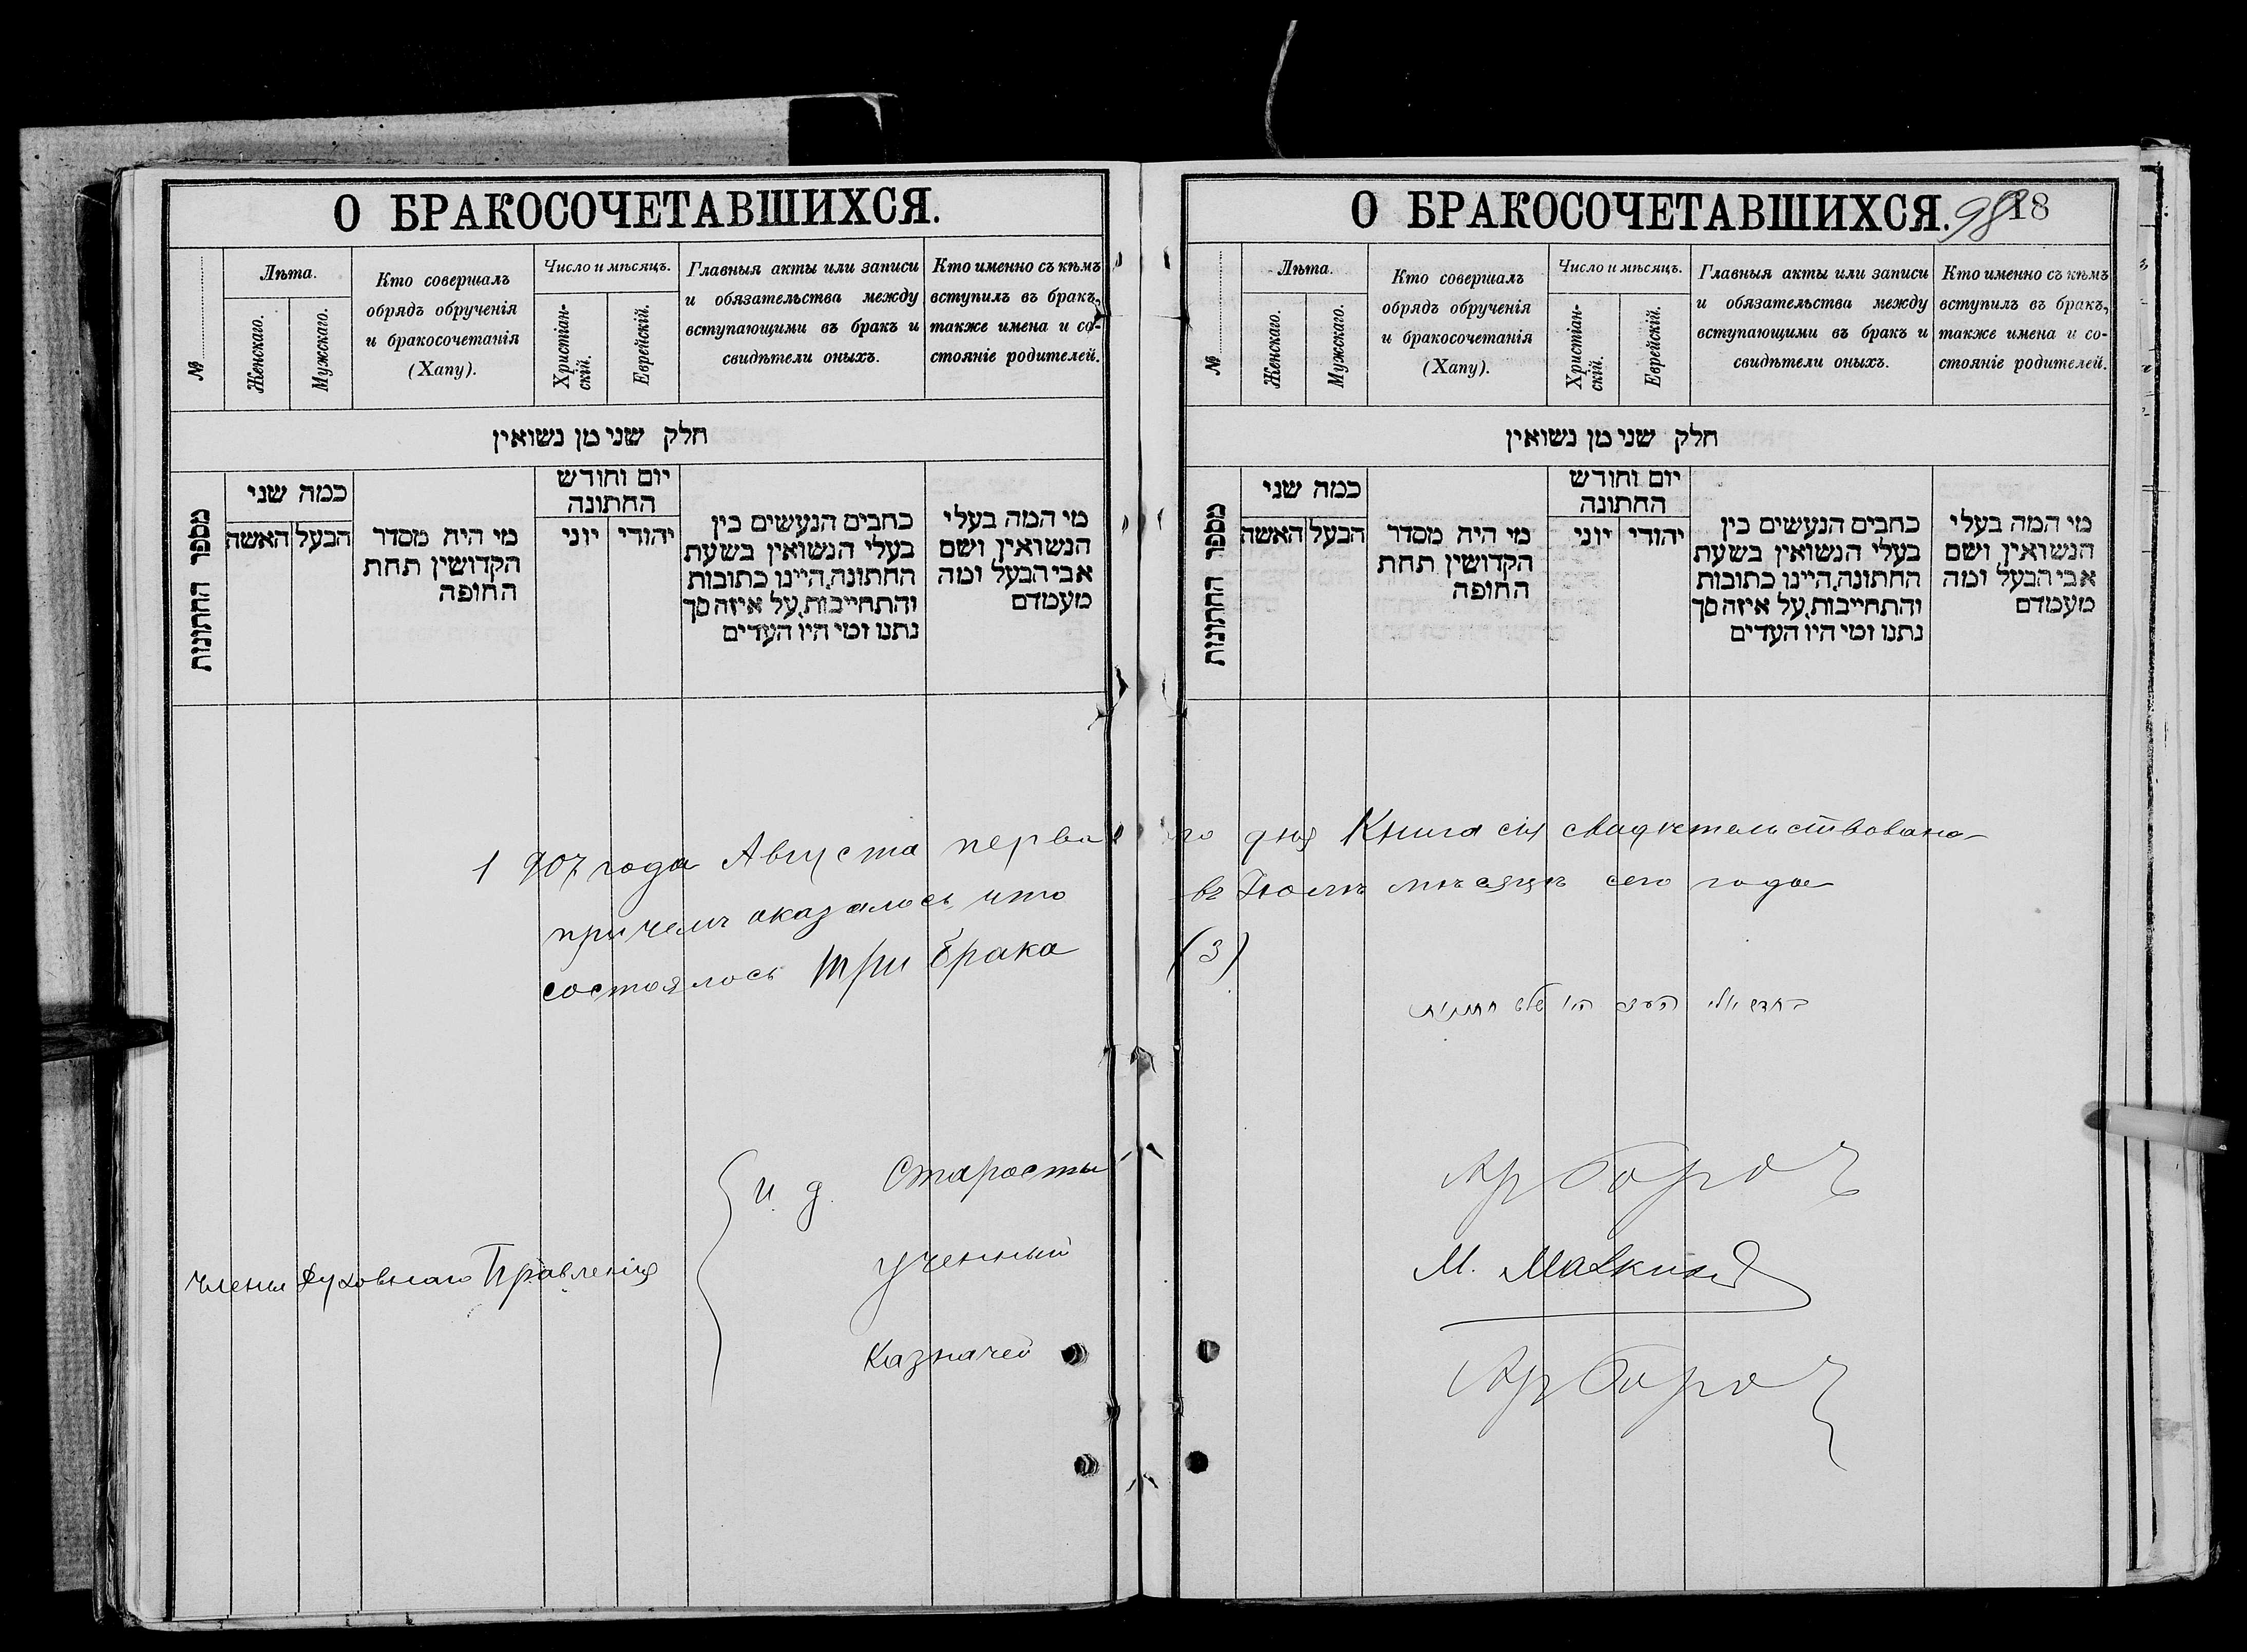 О БРАКОСОЧЕТАВШИХСЯ.
№
Лѣта.
Женскаго.
Мужскаго.
Кто совершалъ
обрядъ обрученія
и бракосочетанія
(Хапу).
Число и мѣсяцъ.
Христіан-
скій.
Еврейскій.
Главныя акты или записи
и обязательства между
вступающими въ бракъ и
свидѣтели оныхъ.
Кто именно съ кѣмъ
вступилъ въ бракъ,
также имена и со-
стояніе родителей.
חלק שני מן נשואין
מספר החתונות
כמה שני
האשה
הבעל
מי היה מסדר
הקדושין תחת
החופה
יום וחודש
החתונה
יוני
יהודי
כתבים הנעשים בין
בעלי הנשואין בשעת
החתונה, היינו כתובות
והתחייבות, על איזה סך
נתנו ומי היו העדים
מי המה בעלי
הנשואין ושם
אבי הבעל ומה
מעמדם
О БРАКОСОЧЕТАВШИХСЯ.
98
18
№
Лѣта.
Женскаго.
Мужскаго.
Кто совершалъ
обрядъ обрученія
и бракосочетанія
(Хапу).
Число и мѣсяцъ.
Христіан-
скій.
Еврейскій.
Главныя акты или записи
и обязательства между
вступающими въ бракъ и
свидѣтели оныхъ.
Кто именно съ кѣмъ
вступилъ въ бракъ,
также имена и со-
стояніе родителей.
חלק שני מן נשואין
מספר החתונות
כמה שני
האשה
הבעל
מי היה מסדר
הקדושין תחת
החופה
יום וחודש
החתונה
יוני
יהודי
כתבים הנעשים בין
בעלי הנשואין בשעת
החתונה, היינו כתובות
והתחייבות, על איזה סך
נתנו ומי היו העדים
מי המה בעלי
הנשואין ושם
אבי הבעל ומה
מעמדם
1907 года Августа перваго дня Книга сія свидѣтельствована
причемъ оказалось что въ Іюлѣ мѣсяцѣ сего года
состоялось три брака (3)
בחדש יולי היו שלש חתונות
Члены Духовнаго Правленія
и. д. Старосты
ученный
М.
Казначей